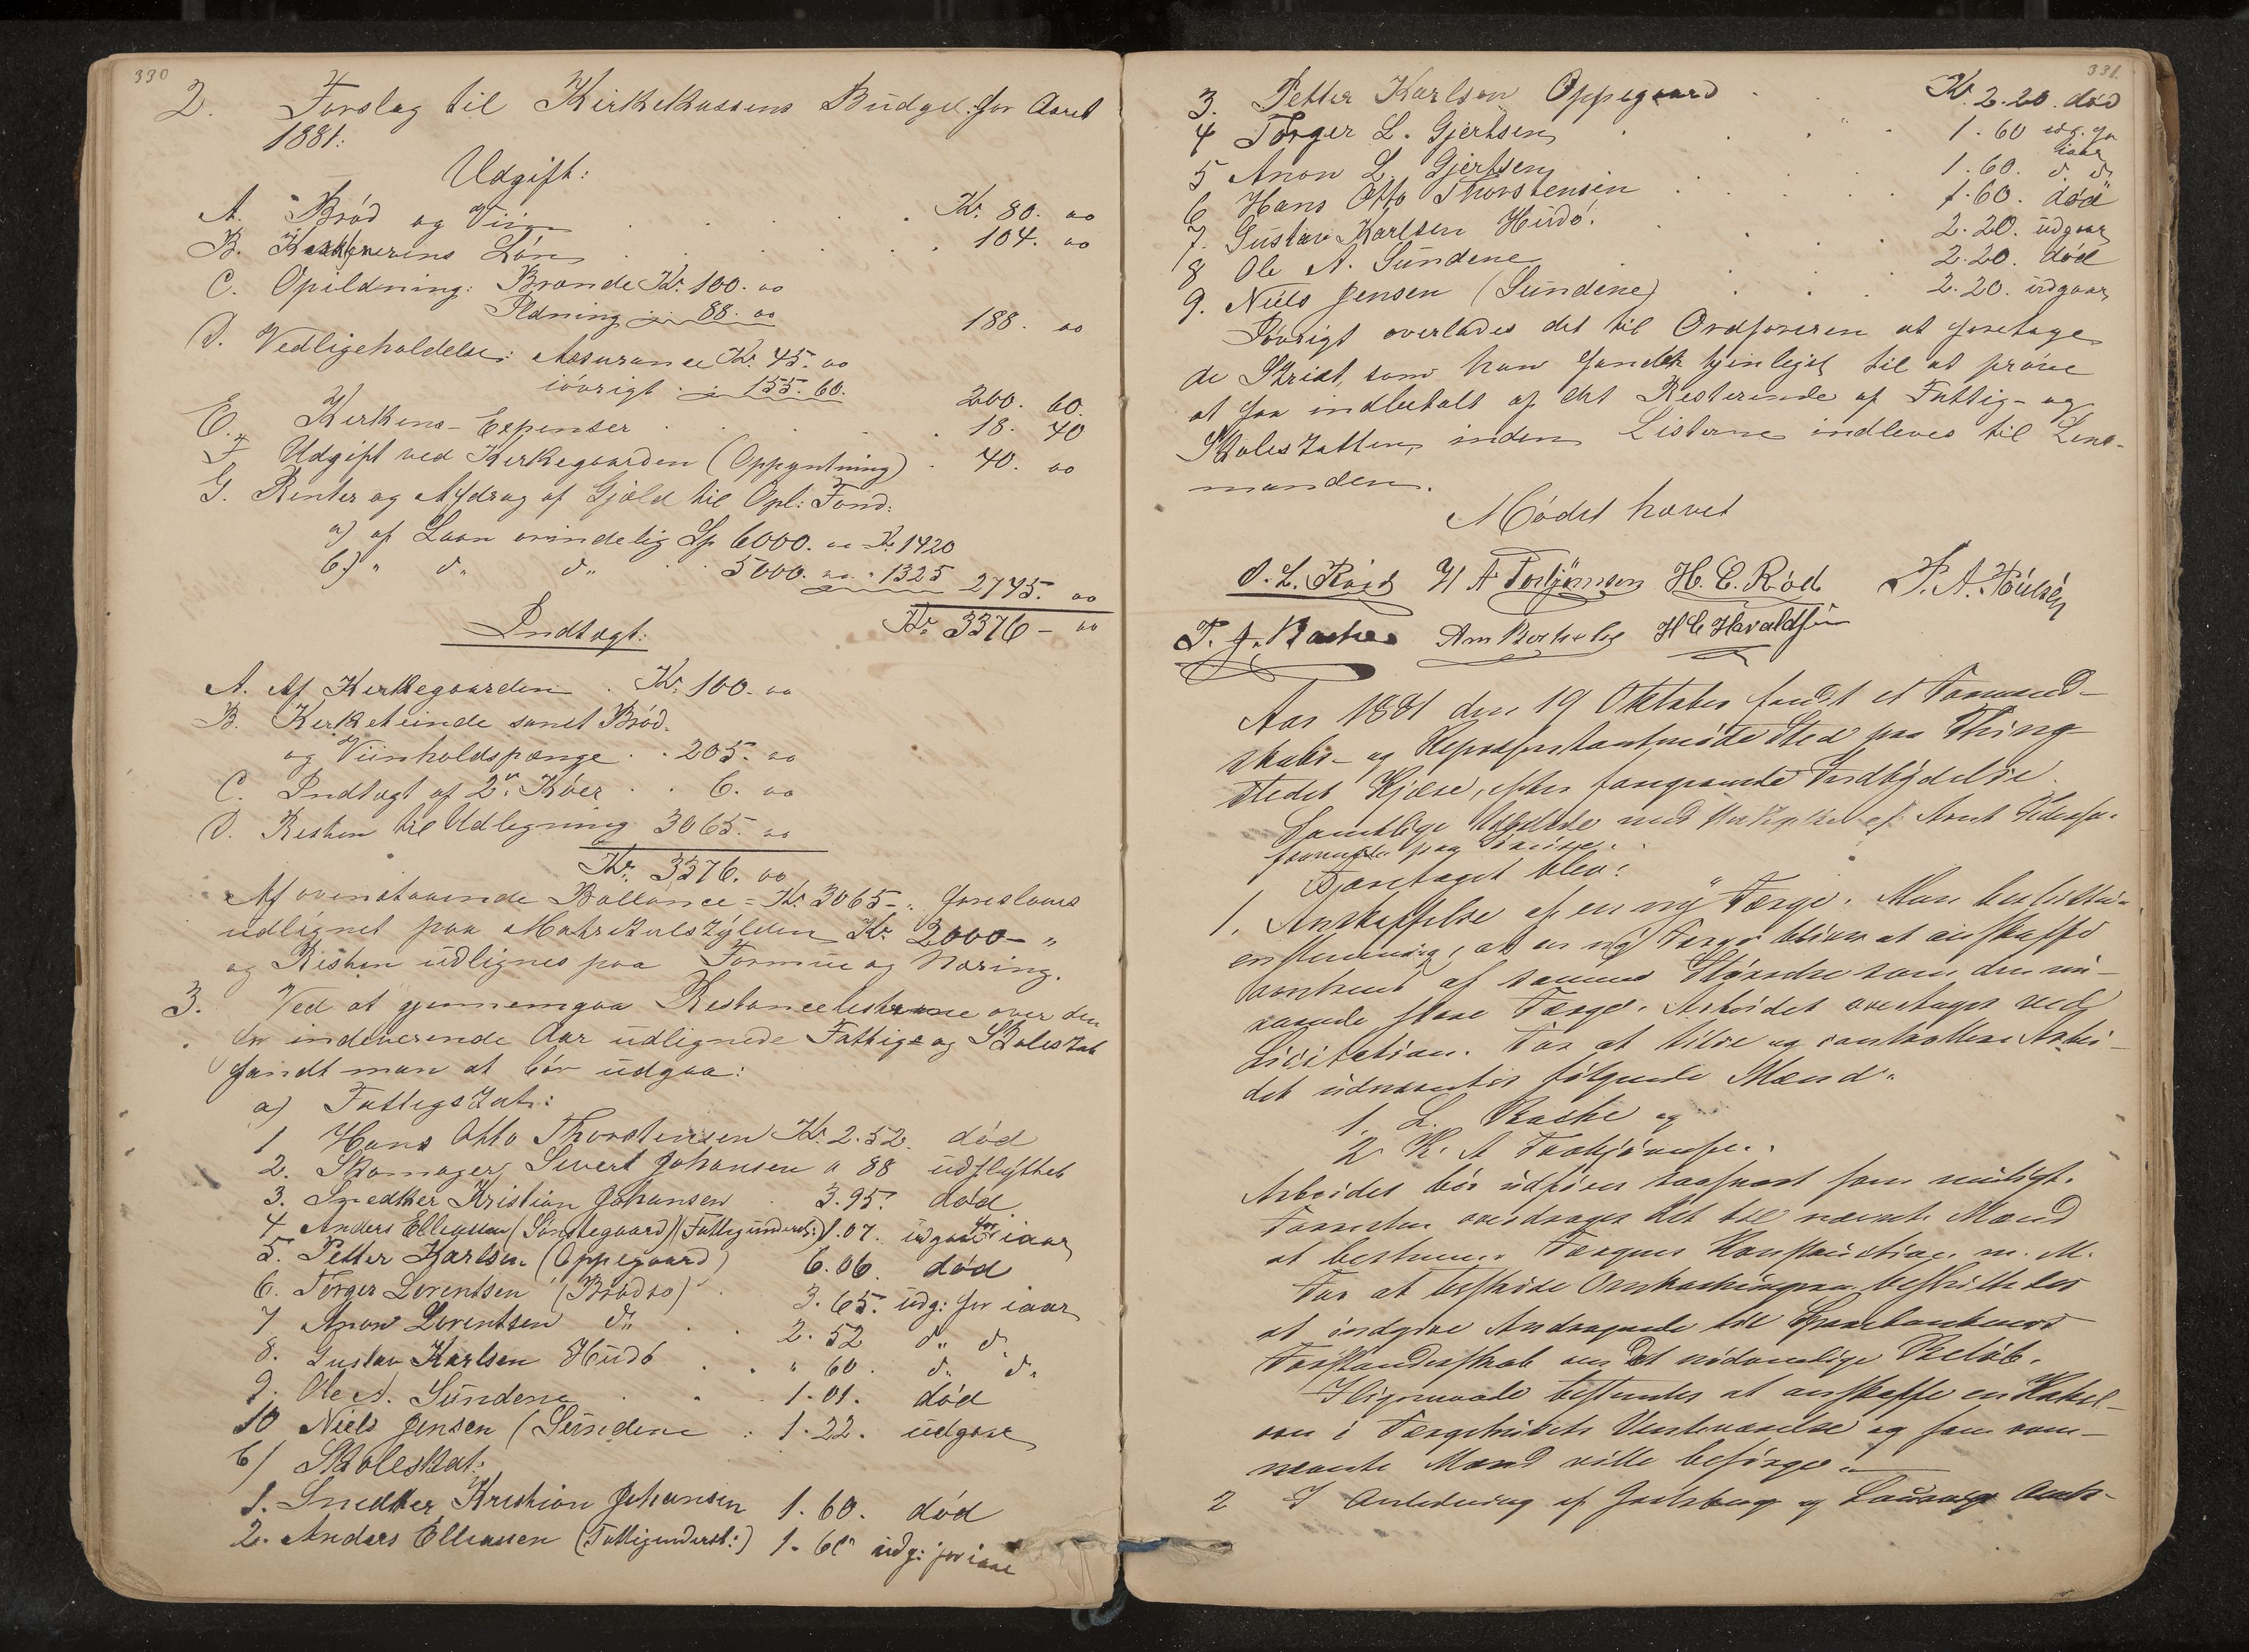 330
2. Forslag til Kirkekassens Budget for Aaret
1881:
Udgift:
A. Brød og Viin . . . . Kr. 80. 00
B. Kirketjenerens Løn . . . . 104. 00
C. Opildning: Brænde Kr. 100. 00
Ildning " 88. 00 188. 00
D. Vedligeholdelse: Assurance Kr. 45. 00
iøvrigt " 155. 60. 200. 60.
E. Kirkens-Expenser . . . . 18. 40
F Udgift ved Kirkegaarden (Oppyntning) . 40. 00
G. Renter og Afdrag af Gjæld til Opl: Fond:
a) af Laan orindelig Sp 6000. 00 Kr 1420
b) " do do 5000. 00 " 1325 2745. 00
Kr. 3376 - 00
Indtægt:
A. Af Kirkegaarden . Kr. 100. 00
B. Kirketiende samt Brød-
og Viinholdspænge . . 205. 00
C. Indtægt af 2de Køer . . 6. 00
D. Resten til Udlegning 3065. 00
Kr. 3376. 00
Af ovenstaaende Ballance = Kr. 3065 - " foreslaaes
udlignet paa Matrikulskylden Kr. 2000 - "
og Resten udlignes paa Formue og Næring.
3. Ved at gjennemgaa Restancelisterne over den
for indeverende Aar udlignede Fattig- og Skoleskat
fandt man at bør udgaa:
a) Fattigskat:
1 Hans Otto Thorstensen Kr. 2.52. død
2. Skomager Sivert Johansen " 88 udflyttet
3. Snedker Kristian Johansen . 3.95. død
4 Anders Elleassen (Sønstegaard) (Fattigunderst:) 1.07. udgaar for iaar
5. Petter Karlsen (Oppegaard) 6.06. død
6. Torger Lorentsen (Brødsø) . 3.65. udg: for iaar
7 Anon Lorentsen do . . 2.52 do do
8. Gustav Karlsen Hudø . . " 60. do do
9. Ole A. Sundene . . 1.01. død
10 Niels Jensen (Sundene . 1.22. udgaar
b) Skoleskat:
1. Snedker Kristian Johansen 1.60. død
2. Anders Elleassen (Fattigunderst:) 1.60 udg: for iaar
331.
3. Petter Karlsen Oppegaard . . Kr. 2.20. død
4 Torger L. Gjertsen . . . 1.60 udg. for
iaar
5 Anon L. Gjertsen . . . 1.60. do do
6 Hans Otto Thorstensen . . . 1.60. død
7. Gustav Karlsen Hudø. . . . 2.20. udgaar
8 Ole A. Sundene . . . 2.20. død
9. Niels Jensen (Sundene) . . . 2.20. udgaar
Iøvrigt overlades det til Ordføreren at foretage
de Skridt, som han fandt tjenligst til at prøve
at faa indbetalt af det Resterende af Fattig- og
Skoleskatten, inden Listerne indleves til Lens-
manden.
Mødet hævet
O. L. Røed H A Torbjørnsen H. C. Rød P. A. Poulsen
T. J. Basthe H C Haraldsen
Aar 1881 den 19 Oktober fandt et Formand-
skabs- og Repræsentantmøde Sted paa Thing
stedet Kjære, efter foregaaende Indbydelse.
Samtlige tilstede med Undtagelse af Arnt Pedersen
fraværende paa Reise.
Foretaget blev:
1. Anskaffelse af en ny Færge. Man besluttede
enstemmig, at en ny Færge bliver at anskaffe
omtrent af samme Størrelse som den nu-
værende store Færge. Arbeidet overtages ved
Licitation. For at tilse og controllere Arbei-
det udnævntes følgende Mænd.
1. L. Basthe og
2. K. A Torbjørnsen.
Arbeidet bør udføres saasnart som muligt.
Forresten overdrages det til nævnte Mænd
at bestemme Færgens Konstruction m. M.
For at bestride Omkostningerne besluttedes
at indgive Andragende til Sparebankens
Forstanderskab om det nødvendige Beløb.
Iligemaade bestemtes at anskaffe en Kakel-
ovn i Færgehusets Venteværelse og som oven-
nævnte Mænd ville besørge.
2 I Anledning af Jarlsberg og Laurvigs Amts-